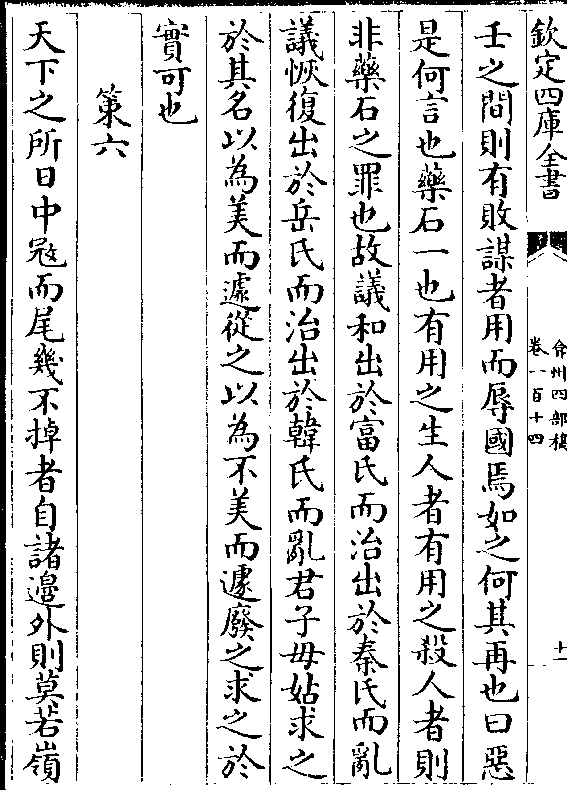 欽定四庫全書
弇州四部稿
卷一百十四
十一
壬之間則有敗謀者用而辱國焉如之何其再也曰惡
是何言也藥石一也有用之生人者有用之殺人者則
非藥石之罪也故議和出於富氏而治出於秦氏而亂
議恢復出於岳氏而治出於韓氏而亂君子毋姑求之
於其名以為美而遽從之以為不美而遽廢之求之於
實可也
第六
天下之所日中寇而尾幾不掉者自諸邉外則莫若嶺